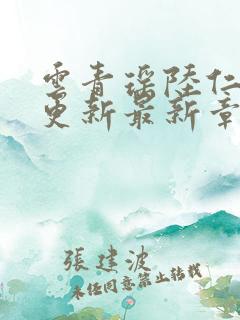 雲青瑶陸仁
更新最新章
張建波
未经同意禁止转载